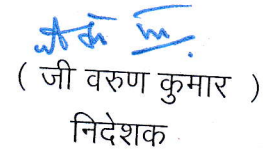 ( जी वरुण कुमार )
निदेशक